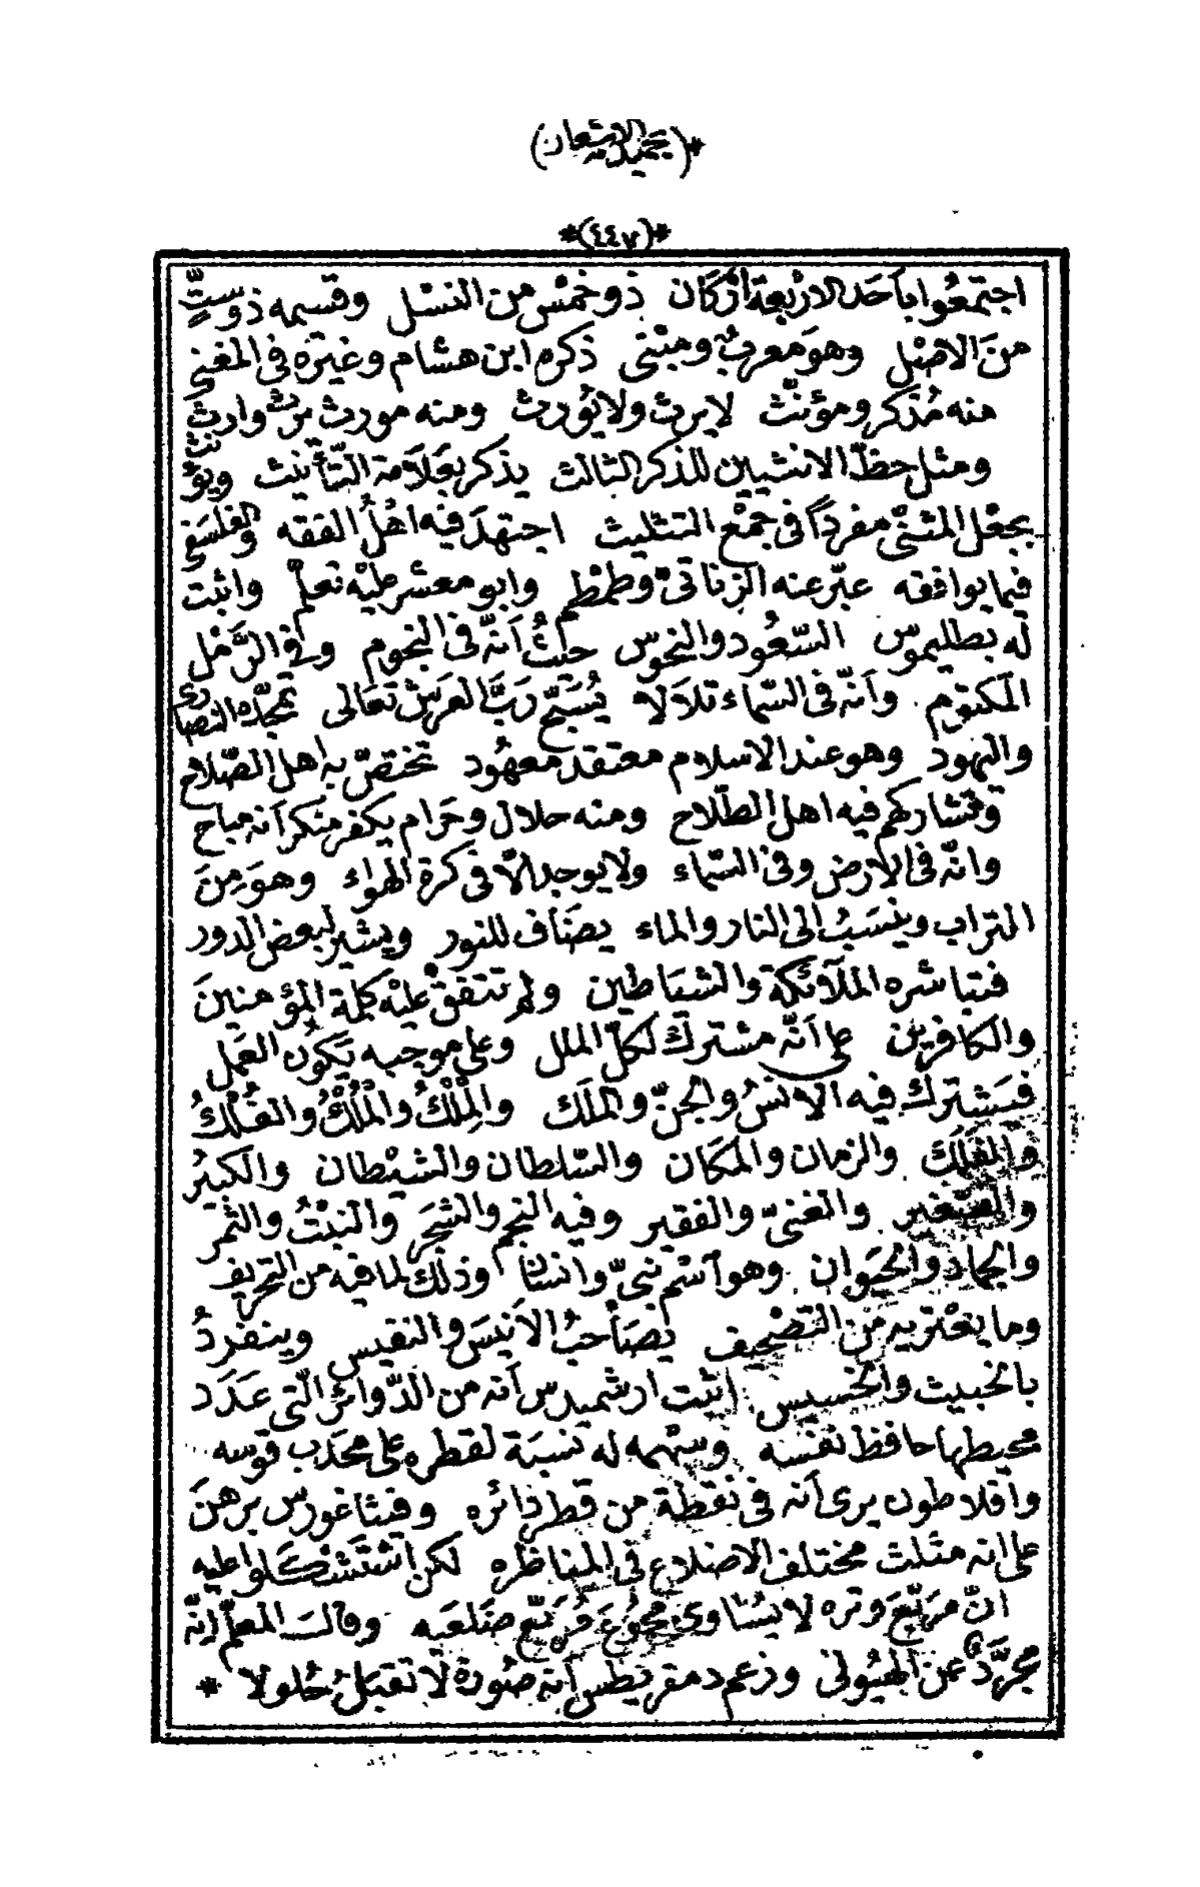 *(٤٤٧)*
اجتمعُوا بأحَد الارْبعة أرْكان ذو خمْس من النسْل وقسيمه ذو ستٍّ
منَ الاصْل وهوَ معربٌ ومبْنى ذكره ابن هشام وغيْره فى المغني
منه مُذكر ومؤنّث لا يرث ولا يُورث ومنه مورث يرث وارث
ومثل حظّ الانثيين للذكر الثالث يذكر بعَلاَمة التّأنيث ويؤنث
بجعْل المثنّى مفرداً فى جمْع التثليث اجتهدَ فيه اهْلُ الفقه والفلسفى
فيما يوافقه عبّر عنه الزناتىّ وطمْطم وابو معشر عليْه تعلمْ واثبت
له بطليموس السّعُود والنحوس حيْثُ أنّه فى النجوم وفى الرَّمْل
المكتوم وأنّه فى السّماء تلاَلا يُسَبّح رَبَّ العرَش تعَالى تمجّده النصارى
واليهود وهو عند الاسلام معتقد معهُود تختصّ به اهل الصّلاح
وتشاركهم فيه اهل الطّلاح ومنه حلال وحَرام يكفر منكر أنه مباح
وانّه فى الارض وفى السّماء ولا يوجد الاّ فى كرة الهواء وهوَ مِنَ
التراب وينسَبُ الى النار والماء يضَاف للنور ويشير لبعض الدور
فتباشره الملآئكة والشيَاطين ولم تتفقْ عليْه كلمة المؤمنينَ
والكافريْن على أنّه مشتركٌ لكلّ الملل وعلى موجبه يَكُون العَمل
فيَشترك فيه الانسُ والجنّ والملَك والمِلْكُ والمُلْكُ والفُلْكُ
والفَلَك والزمان والمكَان والسّلطان والشيْطان والكبيْر
والصّغير والغنىّ والفقير وفيه النجم والشجَر والنبْتُ والثمْر
والجماد والحيَوان وهو أسْم نبىّ وانسَان وذلك لما فيه من التحريف
وما يعْتريه من التصْحيف يصَاحبُ الأنيسَ والنفيس وينفردُ
بالخبيث والخسيس اثبت ارشميدس أنه من الدّوائر الّتى عَدَد
محيطها حافظ نفسَه وسهْمه له نسبَة لقطره على محَدّب قوسه
وافلاطون يرى أنه فى نقطة من قطر دَائره وفيثاغورس برهنَ
على انه مثلث مختلف الاضلاع فى المناظره لكن اسْتشْكَلوا عليه
انّ مرَبّعَ وتره لا يسَاوى مجمُوعَ مُرَبّع ضَلعَيه وقالَ المعلّم انّه
مجرَّدٌ عن الهيُولى وزعم دمقريطس أنه صُورة لا تقبَلُ حُلولا *